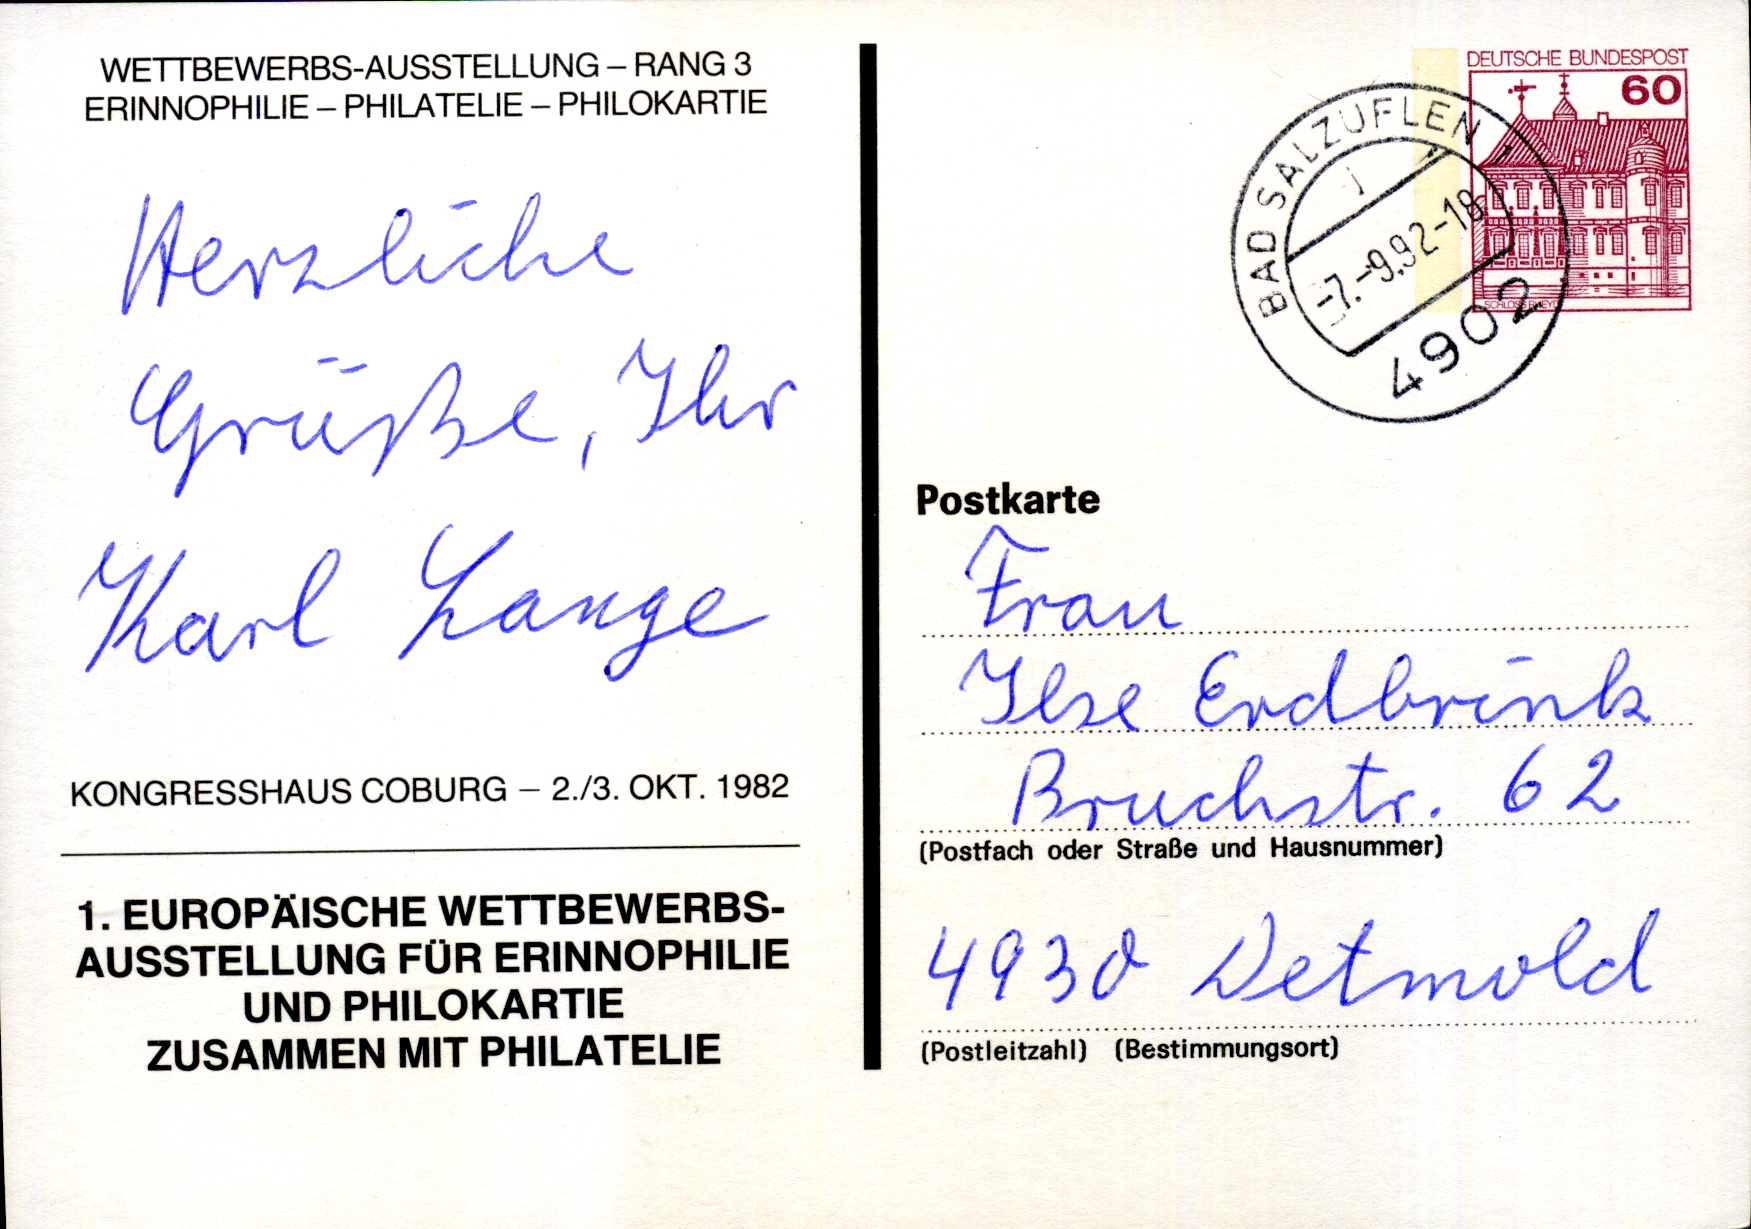 WETTBEWERBS-AUSSTELLUNG – RANG 3
ERINNOPHILIE – PHILATELIE – PHILOKARTIE
Herzliche
Grüße, Ihr
Karl Lange
KONGRESSHAUS COBURG – 2./3. OKT. 1982
1. EUROPÄISCHE WETTBEWERBS-
AUSSTELLUNG FÜR ERINNOPHILIE
UND PHILOKARTIE
ZUSAMMEN MIT PHILATELIE
DEUTSCHE BUNDESPOST
60
SCHLOSS RHEYDT
BAD SALZUFLEN 1
-7.-9.92-18
4902
Postkarte
Frau
Ilse Erdbrink
Bruchstr. 62
(Postfach oder Straße und Hausnummer)
4930 Detmold
(Postleitzahl) (Bestimmungsort)